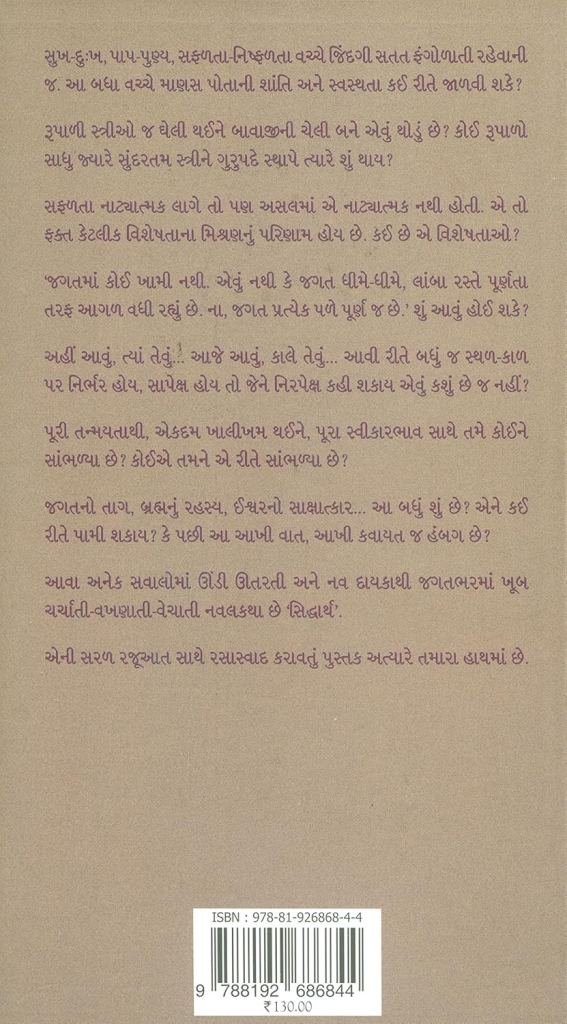 સુખ-દુઃખ, પાપ-પુણ્ય, સફળતા-નિષ્ફળતા વચ્ચે જિંદગી સતત ફંગોળાતી રહેવાની
જ. આ બધા વચ્ચે માણસ પોતાની શાંતિ અને સ્વસ્થતા કઈ રીતે જાળવી શકે?
રૂપાળી સ્ત્રીઓ જ ઘેલી થઈને બાવાજીની ચેલી બને એવું થોડું છે? કોઈ રૂપાળો
સાધુ જ્યારે સુંદરતમ સ્ત્રીને ગુરુપદે સ્થાપે ત્યારે શું થાય?
સફળતા નાટ્યાત્મક લાગે તો પણ અસલમાં એ નાટ્યાત્મક નથી હોતી. એ તો
ફક્ત કેટલીક વિશેષતાના મિશ્રણનું પરિણામ હોય છે. કઈ છે એ વિશેષતાઓ?
‘જગતમાં કોઈ ખામી નથી. એવું નથી કે જગત ધીમે-ધીમે, લાંબા રસ્તે પૂર્ણતા
તરફ આગળ વધી રહ્યું છે. ના, જગત પ્રત્યેક પળે પૂર્ણ જ છે.’ શું આવું હોઈ શકે?
અહીં આવું, ત્યાં તેવું... આજે આવું, કાલે તેવું... આવી રીતે બધું જ સ્થળ-કાળ
પર નિર્ભર હોય, સાપેક્ષ હોય તો જેને નિરપેક્ષ કહી શકાય એવું કશું છે જ નહીં?
પૂરી તન્મયતાથી, એકદમ ખાલીખમ થઈને, પૂરા સ્વીકારભાવ સાથે તમે કોઈને
સાંભળ્યા છે? કોઈએ તમને એ રીતે સાંભળ્યા છે?
જગતનો તાગ, બ્રહ્મનું રહસ્ય, ઈશ્વરનો સાક્ષાત્કાર... આ બધું શું છે? એને કઈ
રીતે પામી શકાય? કે પછી આ આખી વાત, આખી કવાયત જ હંબગ છે?
આવા અનેક સવાલોમાં ઊંડી ઊતરતી અને નવ દાયકાથી જગતભરમાં ખૂબ
ચર્ચાતી-વખણાતી-વેચાતી નવલકથા છે ‘સિદ્ધાર્થ’.
એની સરળ રજૂઆત સાથે રસાસ્વાદ કરાવતું પુસ્તક અત્યારે તમારા હાથમાં છે.
ISBN : 978-81-926868-4-4
9 788192 686844
₹130.00